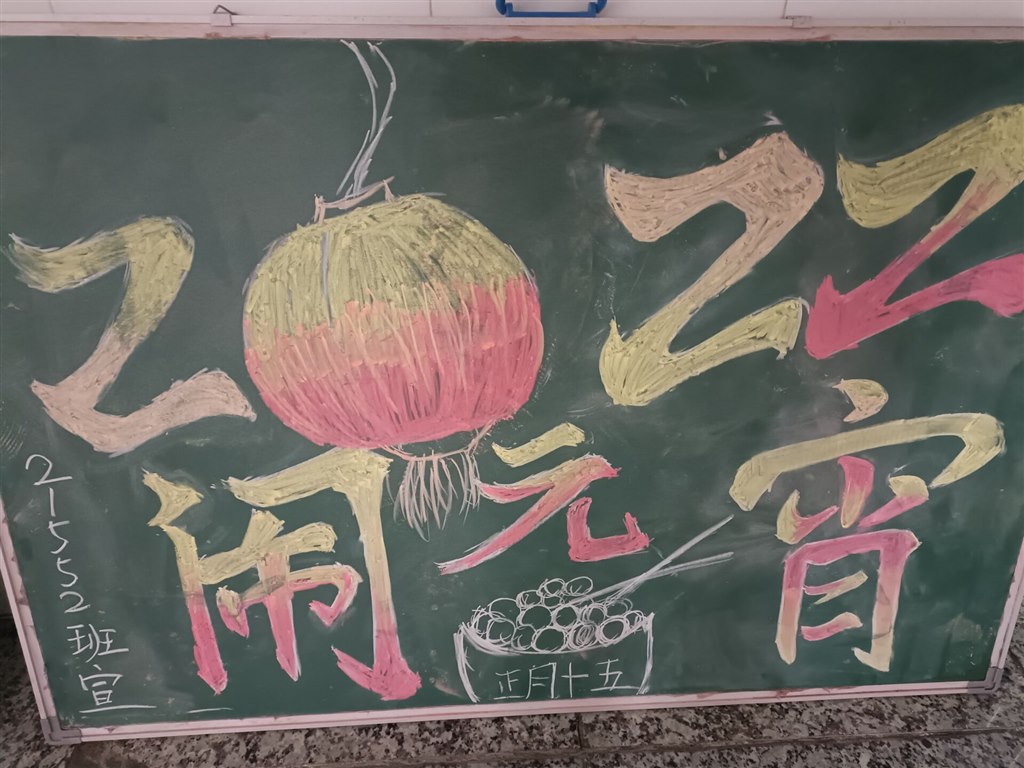 2022
闹元宵
正月十五
21552班宣